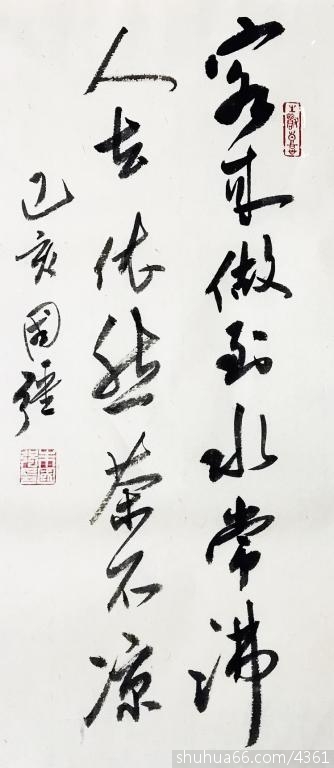 客来做到水常沸
人去依然茶不凉
己亥 国强
shuhua66.com/4361